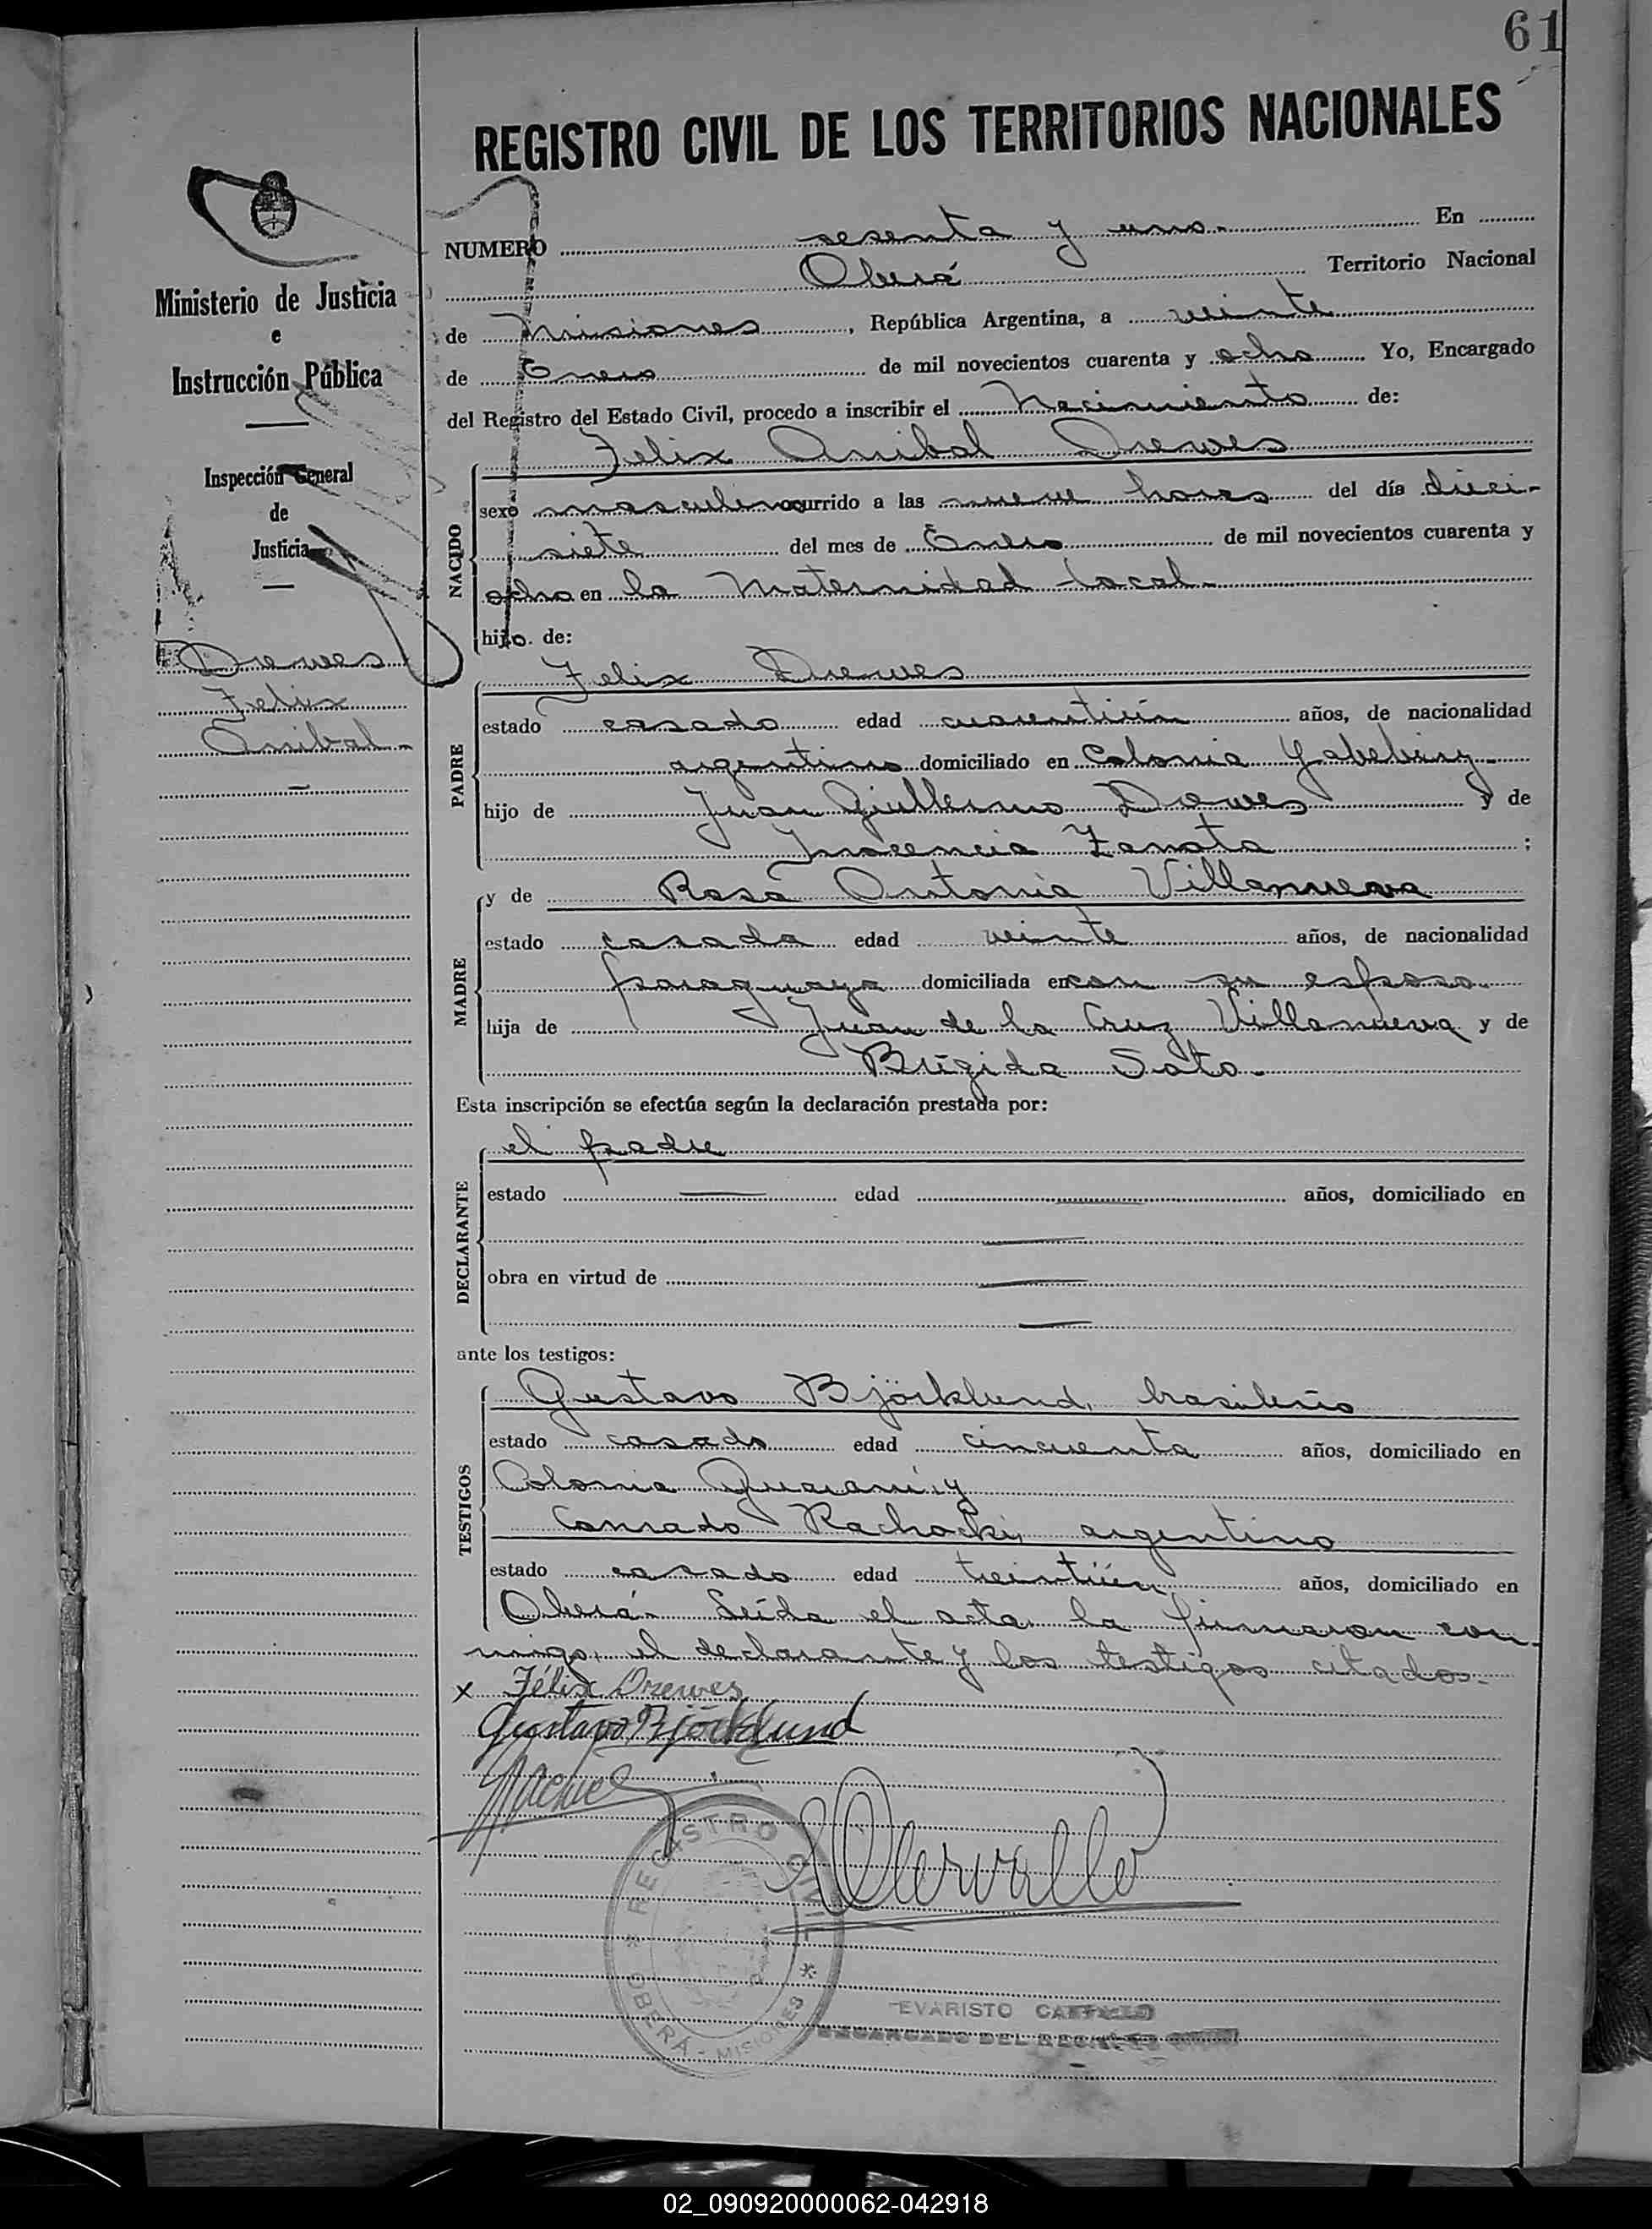 61
REGISTRO CIVIL DE LOS TERRITORIOS NACIONALES
Ministerio de Justicia
e
Instrucción Pública
Inspección General
de
Justicia
Drewes
Felix
Anibal -
NUMERO sesenta y uno.- En
Oberá Territorio Nacional
de Misiones, República Argentina, a veinte
de Enero de mil novecientos cuarenta y ocho Yo, Encargado
del Registro del Estado Civil, procedo a inscribir el Nacimiento de:
Felix Anibal Drewes
NACIDO
sexo masculino ocurrido a las nueve horas del día dieci-
siete del mes de Enero de mil novecientos cuarenta y
ocho en la Maternidad local-
hijo de:
Felix Drewes
PADRE
estado casado edad cuarentiún años, de nacionalidad
argentino domiciliado en Colonia Yabebiry-
hijo de Juan Guillermo Drewes y de
Inocencia Zarrata ;
y de Rosa Antonia Villanueva
MADRE
estado casada edad veinte años, de nacionalidad
paraguaya domiciliada en con su esposo
hija de Juan de la Cruz Villanueva y de
Brígida Soto-
Esta inscripción se efectúa según la declaración prestada por:
el padre
DECLARANTE
estado — edad — años, domiciliado en
—
obra en virtud de —
—
ante los testigos:
Gustavo Björklund, brasileño
TESTIGOS
estado casado edad cincuenta años, domiciliado en
Colonia Guaraní y
Conrado Rachocki, argentino
estado casado edad treintiún años, domiciliado en
Oberá- Leída el acta, la firmaron con-
migo, el declarante y los testigos citados.-
x Félix Drewes
Gustavo Björklund
REGISTRO CIVIL * OBERÁ - MISIONES *
EVARISTO
ENCARGADO DEL REGISTRO CIVIL
02_090920000062-042918